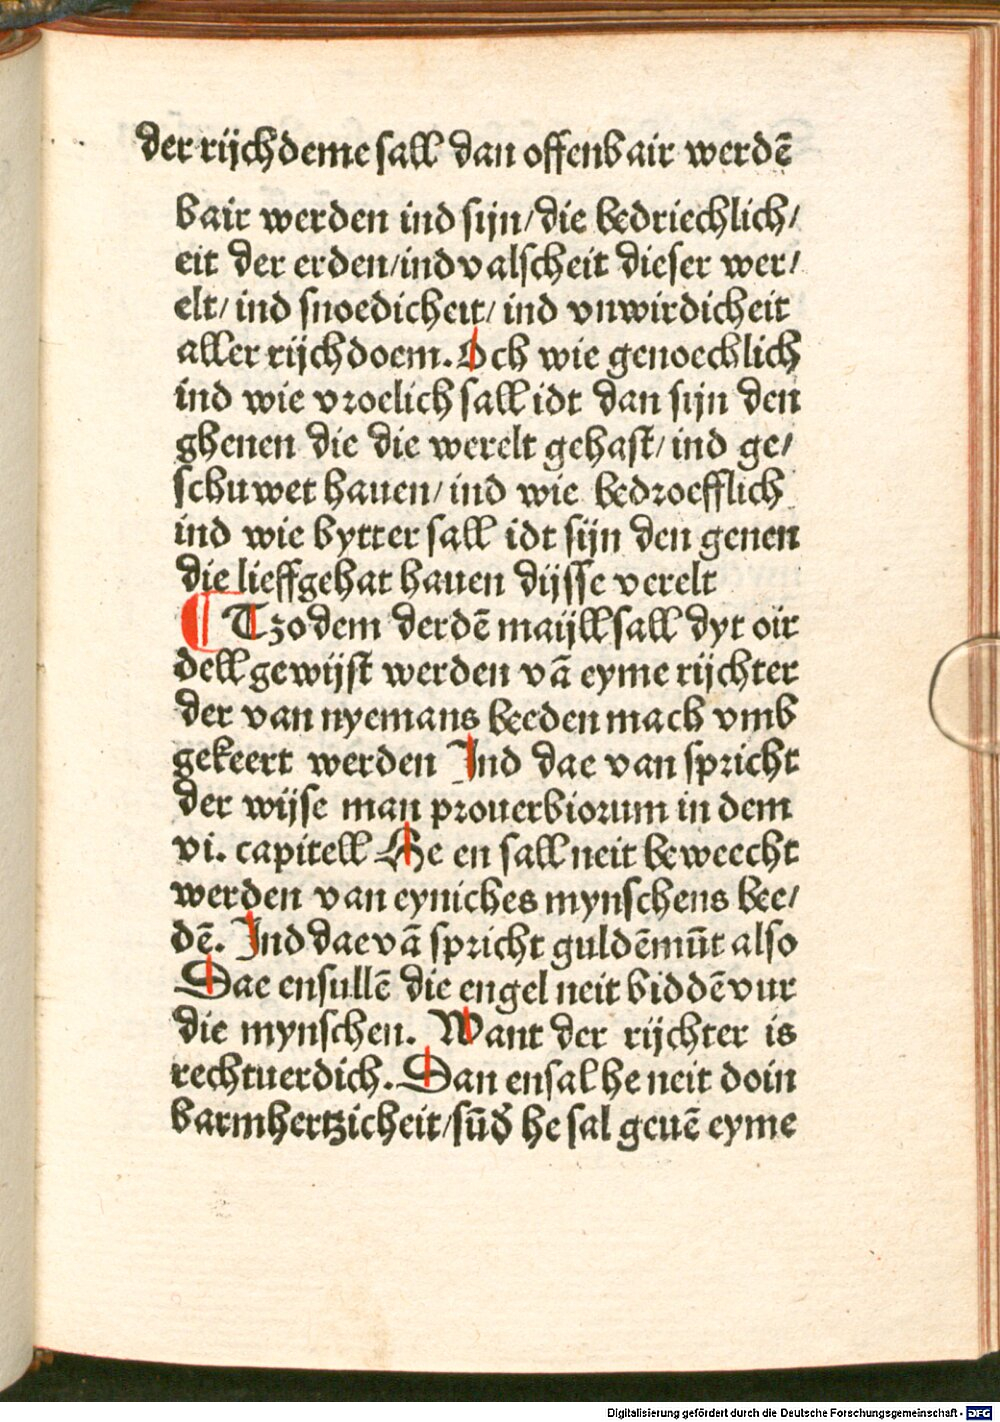 der rijchdeme sall dan offenbair werdē
bair werden ind sijn/die bedriechlich/
eit der erden/ind valscheit dieser wer/
elt/ ind snoedicheit/ ind vnwirdicheit
aller rijchdoem. Och wie genoechlich
ind wie vroelich sall idt dan sijn den
ghenen die die werelt gehast/ ind ge/
schuwet hauen/ ind wie bedroefflich
ind wie bytter sall idt sijn den genen
die lieffgehat hauen dijsse verelt
¶ Tzo dem derdē maijll sall dyt oir
dell gewijst werden vā eyme rijchter
der van nyemans beeden mach vmb
gekeert werden Ind dae van spricht
der wijse man prouerbiorum in dem
vi. capitell He en sall neit beweecht
werden van eyniches mynschens bee/
dē. Ind dae vā spricht guldēmūt also
Dae ensullē die engel neit biddē vur
die mynschen. Want der rijchter is
rechtuerdich. Dan ensal he neit doin
barmhertzicheit/sūđ he sal geuē eyme
Digitalisierung gefördert durch die Deutsche Forschungsgemeinschaft - DFG